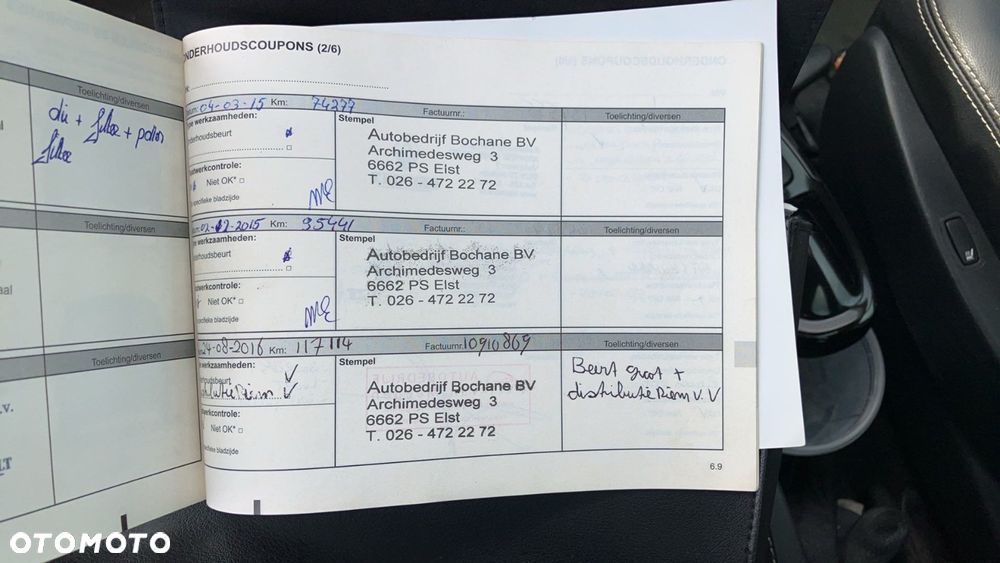 Toelichting/diversen
olie + filter + pollen
filter
Toelichting/diversen
aal
Toelichting/diversen
v.v.
LT
ONDERHOUDSCOUPONS (2/6)
Datum: 04-03-15 Km: 74277 Factuurnr.: Toelichting/diversen
werkzaamheden:
onderhoudsbeurt
Stempel
Autobedrijf Bochane BV
Archimedesweg 3
6662 PS Elst
T. 026 - 472 22 72
Niet OK*
specifieke bladzijde
02-12-2015 Km: 95441 Factuurnr.: Toelichting/diversen
werkzaamheden:
onderhoudsbeurt
Stempel
Autobedrijf Bochane BV
Archimedesweg 3
6662 PS Elst
T. 026 - 472 22 72
Niet OK*
specifieke bladzijde
24-08-2016 Km: 117114 Factuurnr. 10910869 Toelichting/diversen
werkzaamheden:
distributie Riem
Stempel
Autobedrijf Bochane BV
Archimedesweg 3
6662 PS Elst
T. 026 - 472 22 72
Beurt groot +
distributie Riem V.V
Niet OK*
specifieke bladzijde
6.9
OTOMOTO